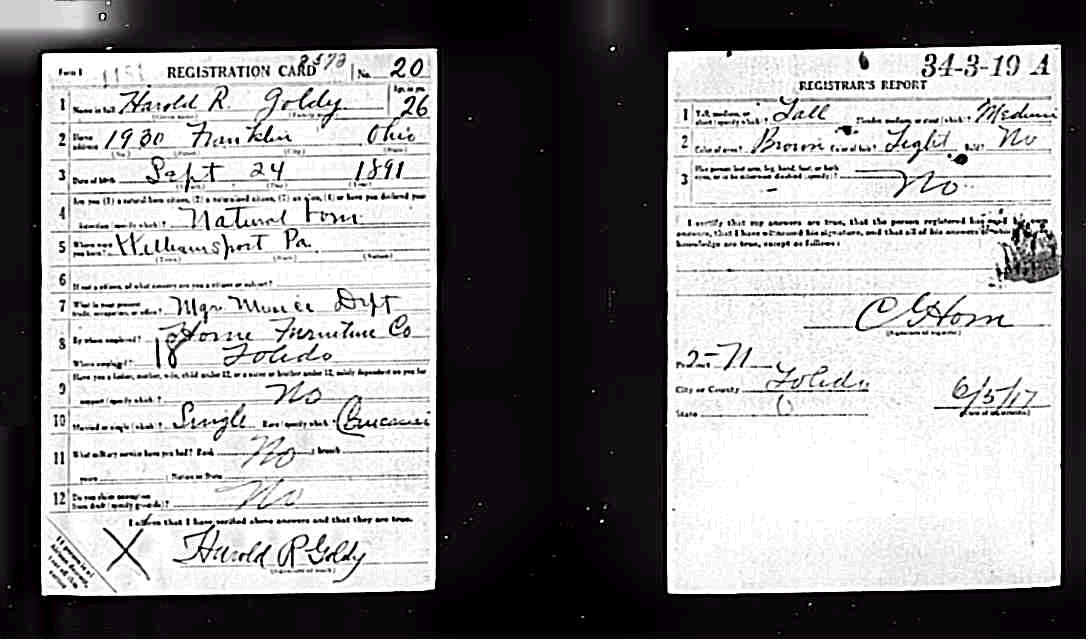 Form 1 1151 REGISTRATION CARD No. 20
1 Name in full Harold R. Goldy Age, in yrs. 26
(Given name) (Family name)
2 Home address 1930 Franklin Ohio
(No.) (Street) (City) (State)
3 Date of birth Sept 24 1891
(Month) (Day) (Year)
4 Are you (1) a natural born citizen, (2) a naturalized citizen, (3) an alien, (4) or have you declared your
intention (specify which)? Natural born
5 Where were you born? Williamsport Pa
(Town) (State) (Nation)
6 If not a citizen, of what country are you a citizen or subject?
7 What is your present trade, occupation, or office? Mgr Dept
8 By whom employed? Home Furniture Co
Where employed? Toledo
9 Have you a father, mother, wife, child under 12, or a sister or brother under 12, solely dependent on you for
support (specify which)? No
10 Married or single (which)? Single Race (specify which)? Caucasian
11 What military service have you had? Rank No ; branch
years ; Nation or State
12 Do you claim exemption from draft (specify grounds)? No
I affirm that I have verified above answers and that they are true.
X Harold R Goldy
(Signature or mark)
34-3-19 A
REGISTRAR'S REPORT
1 Tall, medium, or short (specify which)? Tall Slender, medium, or stout (which)? Medium
2 Color of eyes? Brown Color of hair? Light Bald? No
3 Has person lost arm, leg, hand, foot, or both
eyes, or is he otherwise disabled (specify)? No
I certify that my answers are true, that the person registered has read his own
answers, that I have witnessed his signature, and that all of his answers of which
knowledge are true, except as follows:
C G Horn
(Signature of registrar)
Precinct
City or County Toledo
State O 6/5/17
(Date of registration)